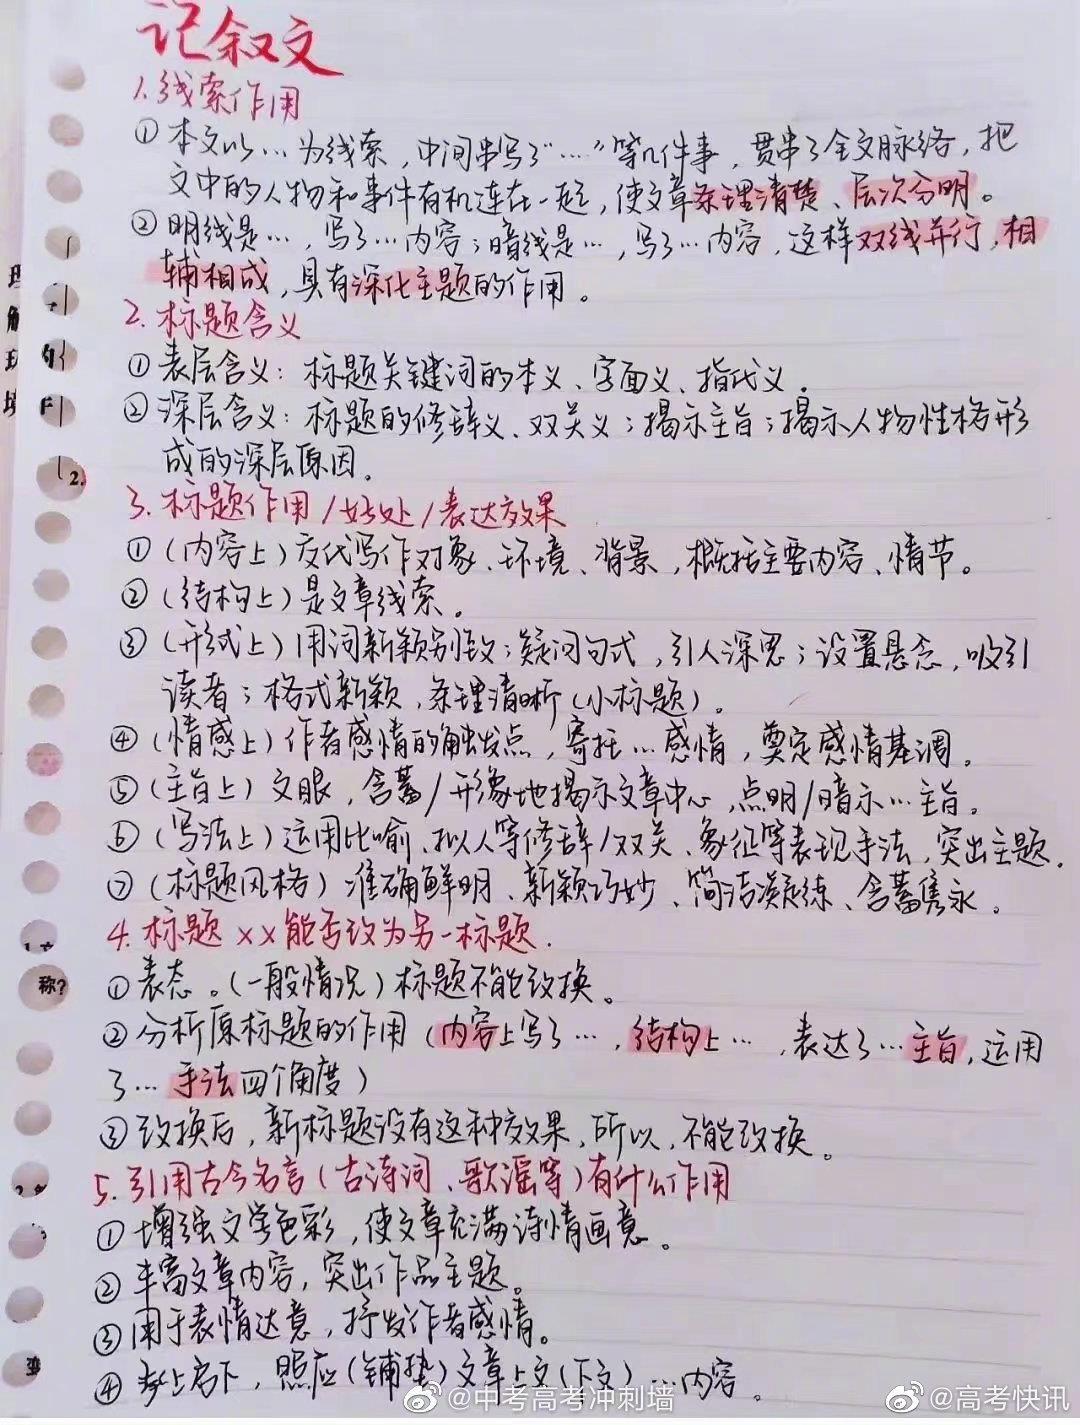 记叙文
1.线索作用
①本文以…为线索,中间串写了"……"等几件事,贯串了全文脉络,把
文中的人物和事件有机连在一起,使文章条理清楚、层次分明。
②明线是…,写了…内容;暗线是…,写了…内容,这样双线并行,相
辅相成,具有深化主题的作用。
2.标题含义
①表层含义:标题关键词的本义、字面义、指代义。
②深层含义:标题的修辞义、双关义;揭示主旨;揭示人物性格形
成的深层原因。
3.标题作用/好处/表达效果
①(内容上)交代写作对象、环境、背景,概括主要内容、情节。
②(结构上)是文章线索。
③(形式上)用词新颖别致;疑问句式,引人深思;设置悬念,吸引
读者;格式新颖,条理清晰(小标题)。
④(情感上)作者感情的触发点,寄托…感情,奠定感情基调。
⑤(主旨上)文眼,含蓄/形象地揭示文章中心,点明/暗示…主旨。
⑥(写法上)运用比喻、拟人等修辞/双关、象征等表现手法,突出主题.
⑦(标题风格)准确鲜明、新颖巧妙、简洁凝练、含蓄隽永。
4.标题××能否改为另一标题.
①表态。(一般情况)标题不能改换。
②分析原标题的作用(内容上写了…,结构上…,表达了…主旨,运用
了…手法四个角度)
③改换后,新标题没有这种效果,所以,不能改换。
5.引用古今名言(古诗词、歌谣等)有什么作用
①增强文学色彩,使文章充满诗情画意。
②丰富文章内容,突出作品主题。
③用于表情达意,抒发作者感情。
④承上启下,照应(铺垫)文章上文(下文)…内容。
理
解
2.
称?
变
@中考高考冲刺墙
@高考快讯